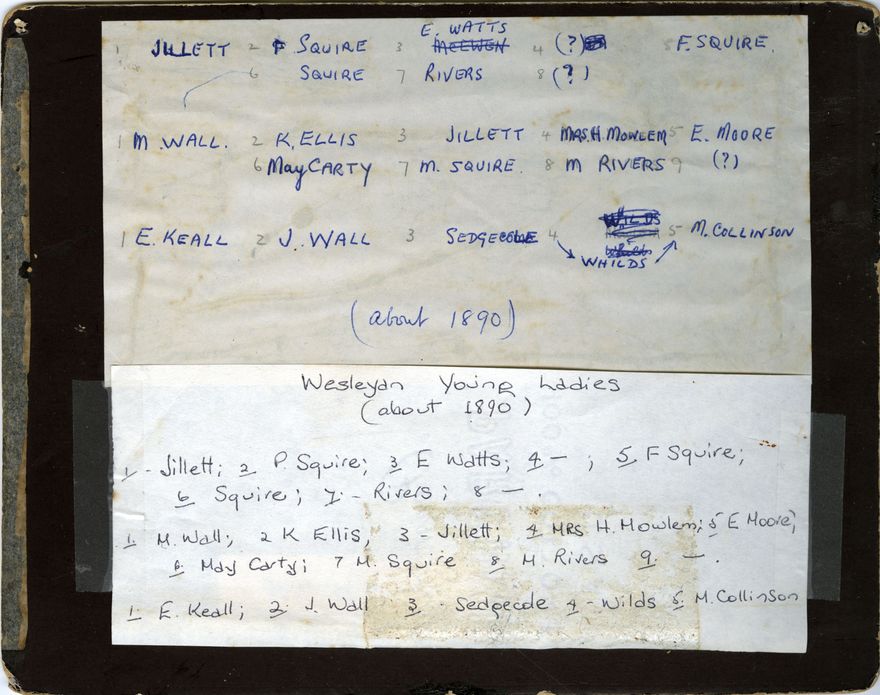 E. WATTS
1 JILLETT 2 P SQUIRE 3 McEWEN 4 (?) 5 F. SQUIRE.
6 SQUIRE 7 RIVERS 8 (?)
1 M. WALL. 2 K, ELLIS 3 JILLETT 4 MRS. H. MOWLEM 5 E. MOORE
6 May CARTY 7 M. SQUIRE. 8 M RIVERS 9 (?)
WILDS
1 E. KEALL 2 J. WALL 3 SEDGECOLE 4 5 M. COLLINSON
WHILDS
(about 1890)
Wesleyan Young Ladies
(about 1890)
1 - Jillett; 2 P. Squire; 3 E Watts; 4 — ; 5 F Squire;
6 Squire; 7 - Rivers; 8 — .
1. M. Wall; 2 K Ellis, 3 - Jillett; 4 MRS H. Mowlem; 5 E Moore;
6 May Carty; 7 M. Squire 8 M. Rivers 9. — .
1. E. Keall; 2. J. Wall 3 - Sedgecole 4 - Wilds 5 M. Collinson